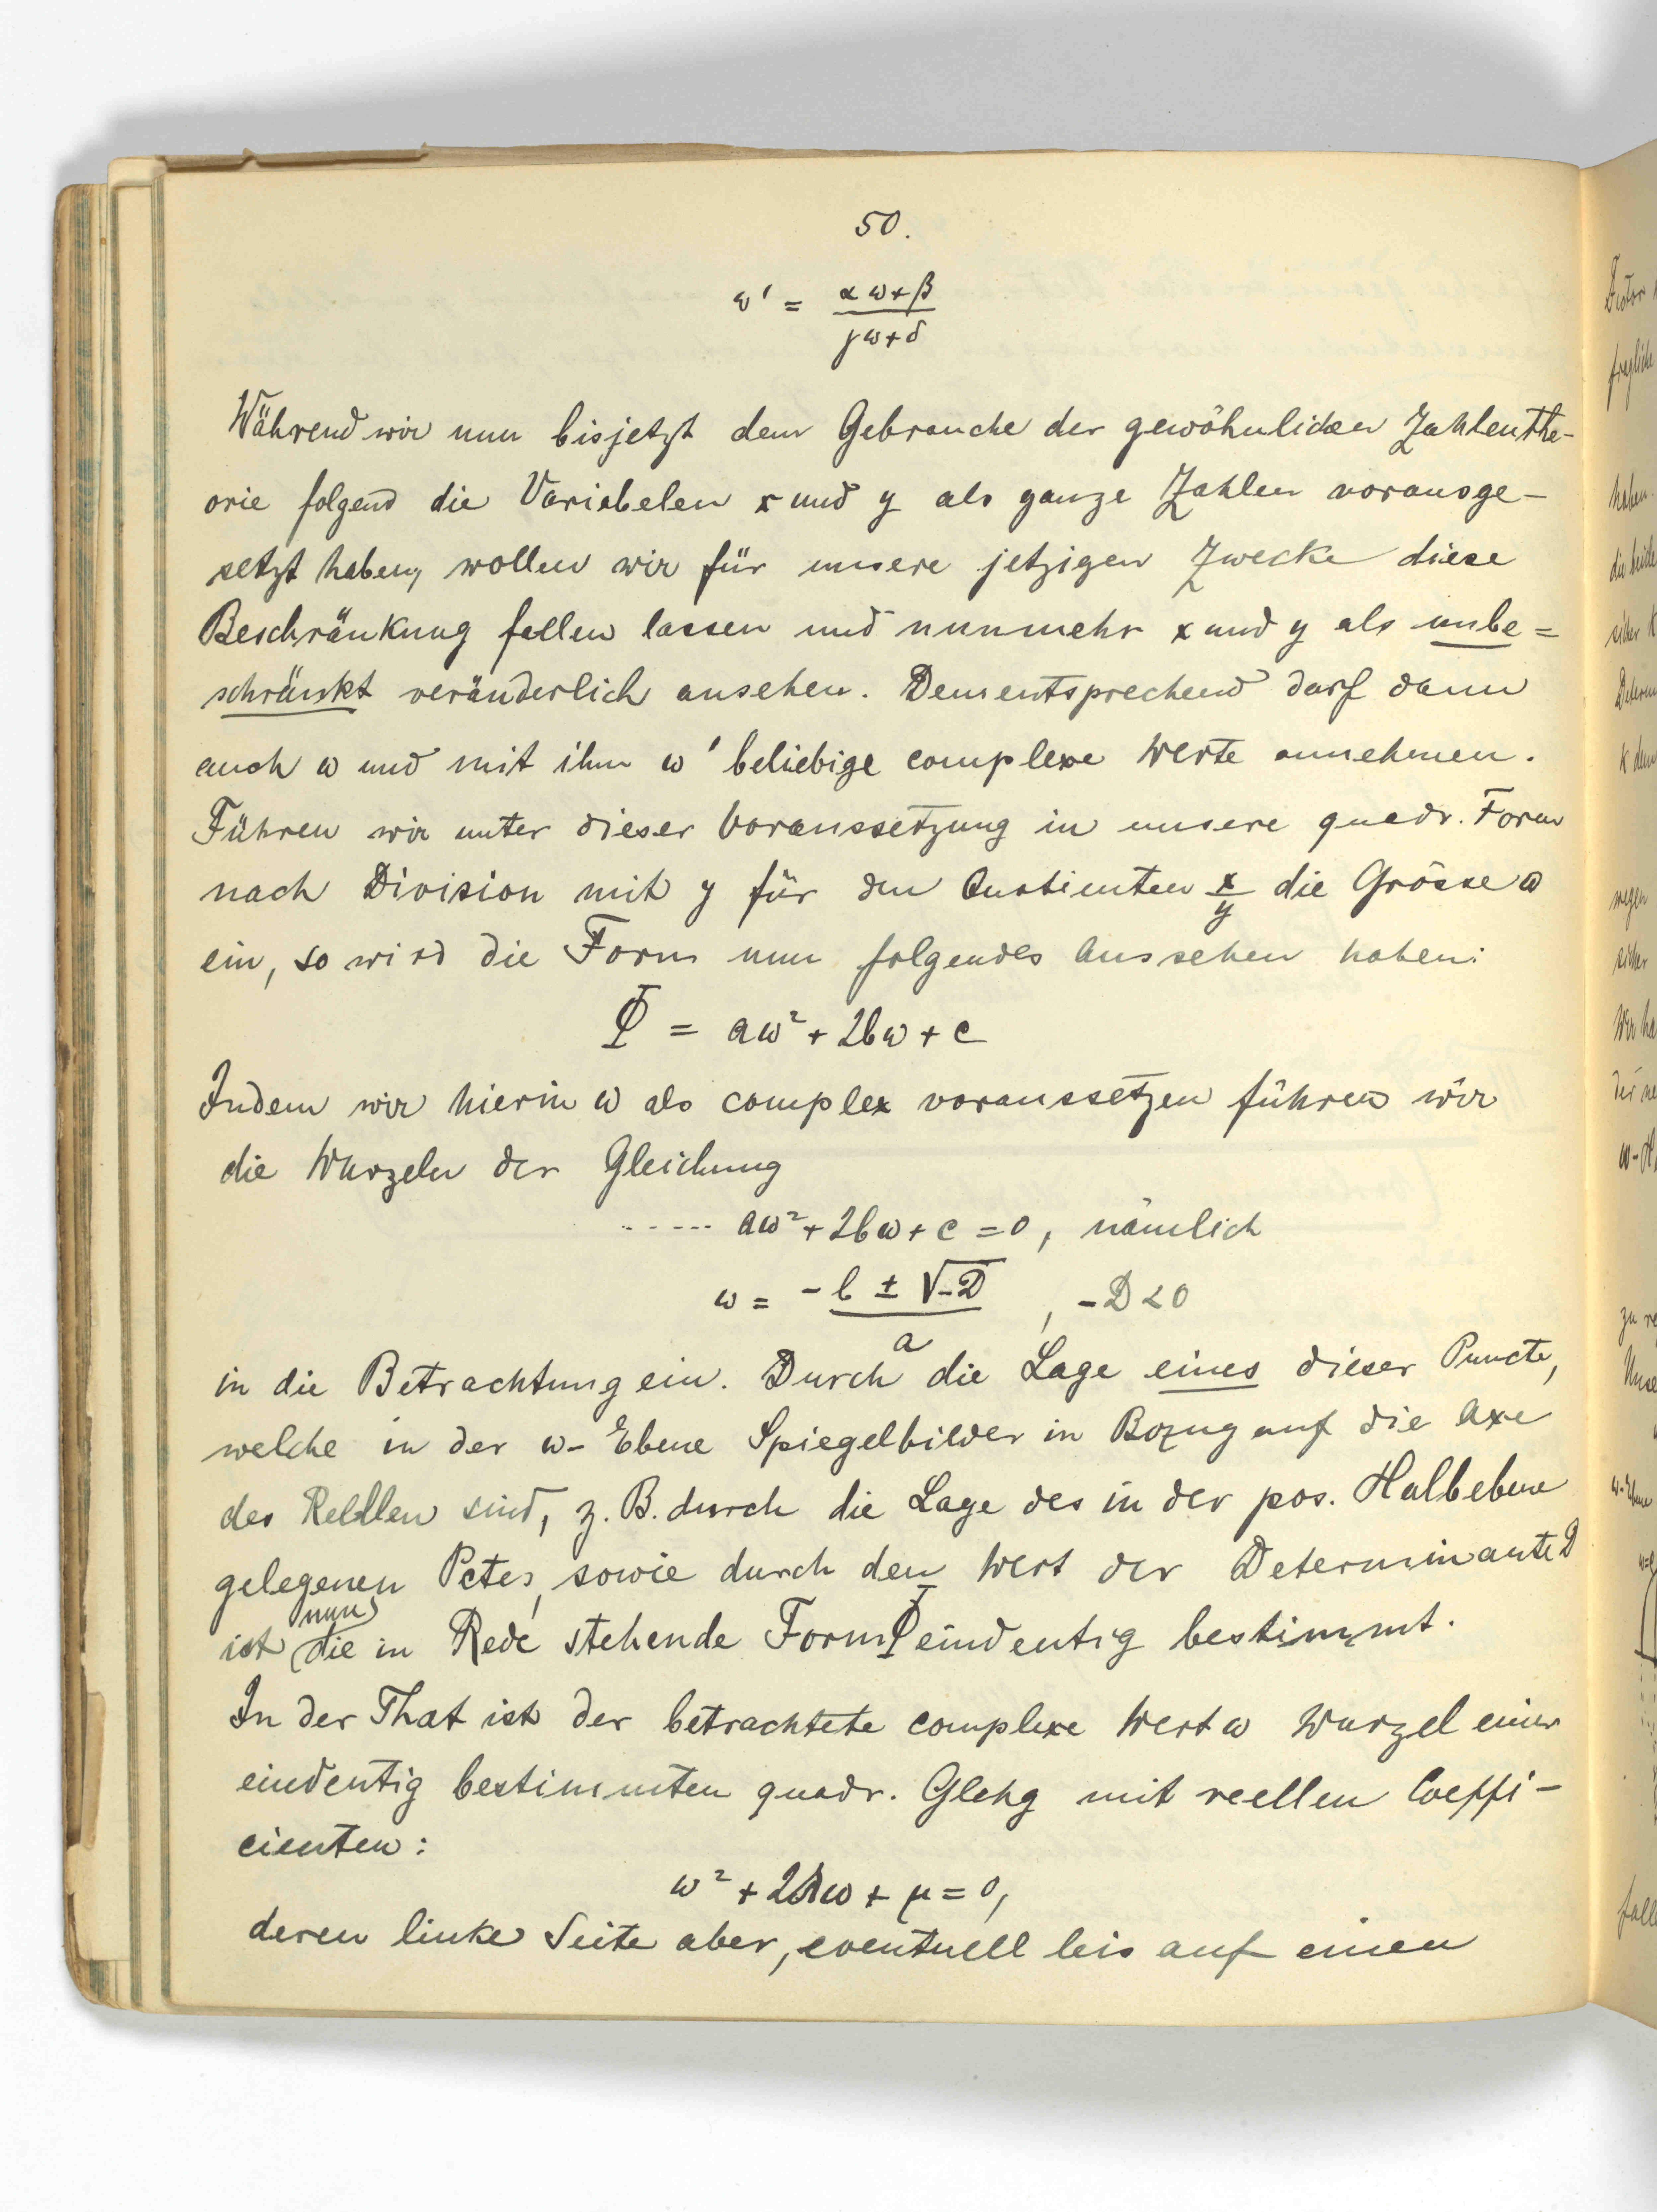 50.
ω' = (αω+β)/(γω+δ)
Während wir nun bisjetzt dem Gebrauche der gewöhnlichen Zahlenthe-
orie folgend die Variabelen x und y als ganze Zahlen vorausge-
setzt haben, wollen wir für unsere jetzigen Zwecke diese
Beschränkung fallen lassen und nunmehr x und y als unbe=
schränkt veränderlich ansehen. Dementsprechend darf dann
auch ω und mit ihm ω' beliebige complexe Werte annehmen.
Führen wir unter dieser Voraussetzung in unsere quadr. Form
nach Division mit y für den Quotienten x/y die Grösse ω
ein, so wird die Form nun folgendes Aussehen haben:
Φ = aω² + 2bω + c
Indem wir hierin ω als complex voraussetzen führen wir
die Wurzeln der Gleichung
----- aω² + 2bω + c = 0, nämlich
ω = (-b ± √-D)/a , -D < 0
in die Betrachtung ein. Durch die Lage eines dieser Puncte,
welche in der ω-Ebene Spiegelbilder in Bezug auf die Axe
des Reellen sind, z. B. durch die Lage des in der pos. Halbebene
gelegenen Pctes, sowie durch den Wert der Determinante D
ist nun die in Rede stehende Form Φ eindeutig bestimmt.
In der That ist der betrachtete complexe Wert ω Wurzel einer
eindeutig bestimmten quadr. Glchg mit reellen Coeffi-
cienten:
ω² + 2λω + μ = 0,
deren linke Seite aber, eventuell bis auf einen